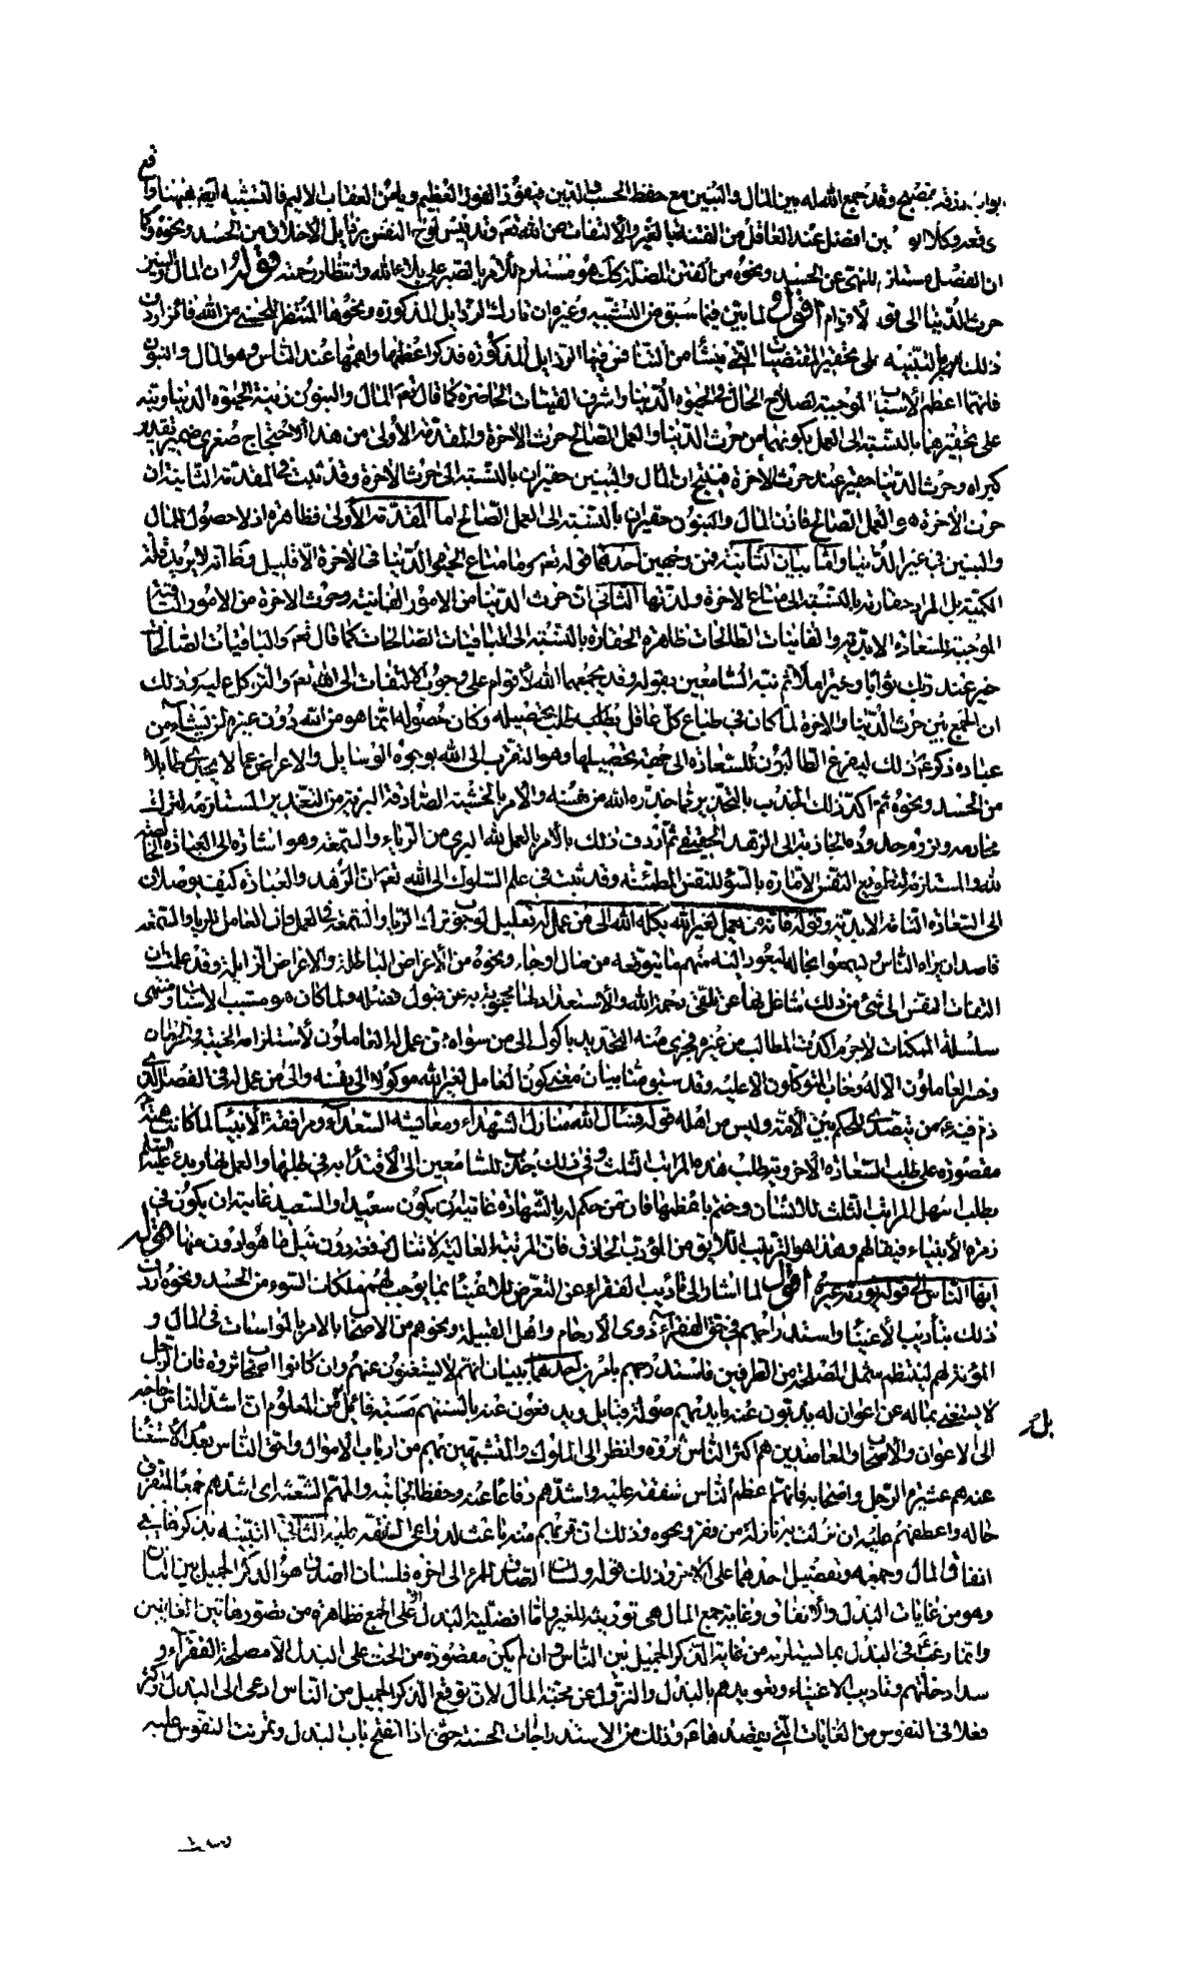 فع
بواب رزقه بمصبح وقد جمع الله له بين المال والبنين مع حفظ الحسب والدين فيفوز الفوز العظيم ويأمن العقاب الاليم فالتشبيه ايضا
افضل عند العاقل من الفتنة بالغير والالتفات عن الله تعم وتدنيس لوح النفس برذايل الأخلاق من الحسد ونحوه
ان الفصل مستلزم للنهى عن الحسد ونحوه من الفتن المضلة كك هو مستلزم للأمر بالصبر على بلاء الله وانتظار رحمته قوله ان المال والبنين
حرث الدنيا الى قوله لأقوام أقول لما بين فيما سبق من التشبيه وغيره ان تارك الرذايل المذكورة ونحوها المنتظر للحسنى من الله فائز اردف
ذلك بالتنبيه على تحقير المقتضيات التى ينشأ من التنافس فيها الرذايل المذكورة فذكر اعظمها واهمها عند الناس وهو المال والبنون
فانهما اعظم الأسباب الموجبة لصلاح الحال فى الحيوة الدنيا واشرف القينات الحاضرة كما قال تعم المال والبنون زينة الحيوة الدنيا ونبه
على تحقيرهما بالنسبة الى العمل بكونهما من حرث الدنيا والعمل الصالح حرث الآخرة والمقدمة الأولى من هذا الاحتجاج صغرى ضمير تقدير
كبراه وحرث الدنيا حقير عند حرث الآخرة فينتج ان المال والبنين حقيران بالنسبة الى حرث الآخرة وقد ثبت فى المقدمة الثانية ان
حرث الآخرة هو العمل الصالح فاذن المال والبنون حقيران بالنسبة الى العمل الصالح اما المقدمة الأولى فظاهرة اذ لا حصول للمال
والبنين فى غير الدنيا واما بيان الثانية فمن وجهين احدهما قوله تعم وما متاع الحيوة الدنيا فى الآخرة الا قليل وظ انه لا يريد قلة
الكمية بل المراد حقارته بالنسبة الى متاع الآخرة ولذتها الثانى ان حرث الدنيا من الامور الفانية وحرث الآخرة من الامور الباقية
الموجبة للسعادة الابدية والفانيات الطالحات ظاهرة الحقارة بالنسبة الى الباقيات الصالحات كما قال تعم والباقيات الصالحات
خير عند ربك ثوابا وخير املا ثم نبه السامعين بقوله وقد يجمعهما الله لأقوام على وجوب الالتفات الى الله تعم والتوكل عليه وذلك
ان الجمع بين حرث الدنيا والاخرة لما كان فى طباع كل عاقل يطلب تحصيله وكان حصوله انما هو من الله دون غيره لمن يشاء من
عباده ذكر عم ذلك ليفرغ الطالبون للسعادة الى جهة تحصيلها وهو التقرب الى الله بوجوه الوسايل والاعراض عما لا يجدى طايلا
من الحسد ونحوه ثم اكد ذلك الجذب بالتحذير مما حذره الله من نفسه والامر بالخشية الصادقة البرية من التعذير المستلزمة لترك
محارمه ولزوم حدوده الجاذبة الى الزهد الحقيقى ثم اردف ذلك بالأمر بالعمل لله البرى من الرياء والسمعة وهو اشارة الى العبادة الخالصة
لله والمستلزم لتطويع النفس الامارة بالسوء للنفس المطمئنة وقد ثبت فى علم السلوك الى الله تعم ان الزهد والعبادة كيف يوصلان
الى السعادة التامة الابدية وقوله فانه من يعمل لغير الله يكله الله الى من عمل له تعليل لوجوب ترك الرياء والسمعة فى العمل فان العامل للرياء والسمعة
قاصدا ان يراه الناس وليسمعوا بحاله ليعود اليه منهم ما يتوقعه من مال وجاه ونحوه من الأعراض الباطلة والاغراض الزايلة وقد علمت ان
التفات النفس الى شىء من ذلك شاغل لها عن تلقى رحمة الله والاستعداد لها محجوبة به عن قبول فضله ولما كان هو مسبب الاسباب ومنتهى
سلسلة الممكنات لا جرم اكدت المطالب من غيره منه
وخسر العاملون الا له وخاب المتوكلون الا عليه وقد سبق منا بيان معنى كون العامل لغير الله موكولا الى نفسه والى من عمل له فى الفصل الذى
ذم فيه من يتصدى للحكم بين الأمة وليس من اهله قوله نسأل الله منازل الشهداء ومعايشة السعداء ومرافقة الأنبياء لما كانت همته
مقصورة على طلب السعادة الأخروية طلب هذه المراتب الثلث وفى ذلك جذب للسامعين الى الاقتداء به فى طلبها والعمل لها وبدء عليه السلم
بطلب اسهل المراتب الثلث للانسان وختم باعظمها فان من حكم له بالشهادة غايته ان يكون سعيدا والسعيد غايته ان يكون فى
زمرة الأنبياء رفيقا لهم وهذا هو الترتيب اللايق من المؤدب الحاذق فان المرتبة العالية لا تنال دفعة دون نيل ما هو ادون منها قوله
ايها الناس الى قوله يورثه غيره أقول لما اشار الى تأديب الفقراء عن التعرض للاغنياء بما يوجب لهم ملكات السوء من الحسد ونحوه اردف
ذلك بتأديب الأغنياء واستدراجهم فى حق الفقراء ذوى الأرحام واهل القبيلة ونحوهم من الاصحاب بالأمر بالمواسات فى المال و
المؤنة لهم لينتظم شمل المصلحة من الطرفين فاستدرجهم بأمرين احدهما بيان انهم لا يستغنون عنهم وان كانوا اصحاب ثروة فان الرجل
لا يستغنى بماله عن اعوان له يذبون عنه بايديهم صولة قبايل ويدفعون عنه بالسنتهم مسبة قائل من المعلوم ان اشد الناس حاجة
بل
الى الاعوان والاصحاب والمعاضدين هم اكثر الناس ثروة وانظر الى الملوك والمتشبهين بهم من ارباب الأموال واحق الناس بعدم الاستغناء
عندهم عشيرة الرجل واصحابه فانهم اعظم الناس شفقة عليه واشدهم دفاعا عنه وحفظا لجانبه والمهم لشعثه اى اشدهم جمعا لمتفرق
حاله واعطفهم عليه ان نزلت به نازلة من فقر ونحوه وذلك ان قربهم منه باعث لدواعى الشفقة عليه الثانى التنبيه بذكر غايتى
انفاق المال وجمعه وتفضيل احدهما على الاخر وذلك قوله ولسان الصدق للمرء الى آخره فلسان الصدق هو الذكر الجميل بين الناس
وهو من غايات البذل والانفاق وغاية جمع المال هى توريثه للغير واما افضلية البذل على الجمع فظاهرة من تصور هاتين الغايتين
وانما رغب فى البذل بما يستلزمه من غاية الذكر الجميل بين الناس وان لم يكن مقصوده من الحث على البذل الا مصلحة الفقراء و
سداد خلتهم وتأديب الاغنياء وتعويدهم بالبذل والنزول عن محبة المال لان توقع الذكر الجميل من الناس ادعى الى البذل واكثر
فعلا فى النفوس من الغايات التى يقصدها عم وذلك من الاستدراجات الحسنة حتى اذا انفتح باب البذل وتمرنت النفوس عليه